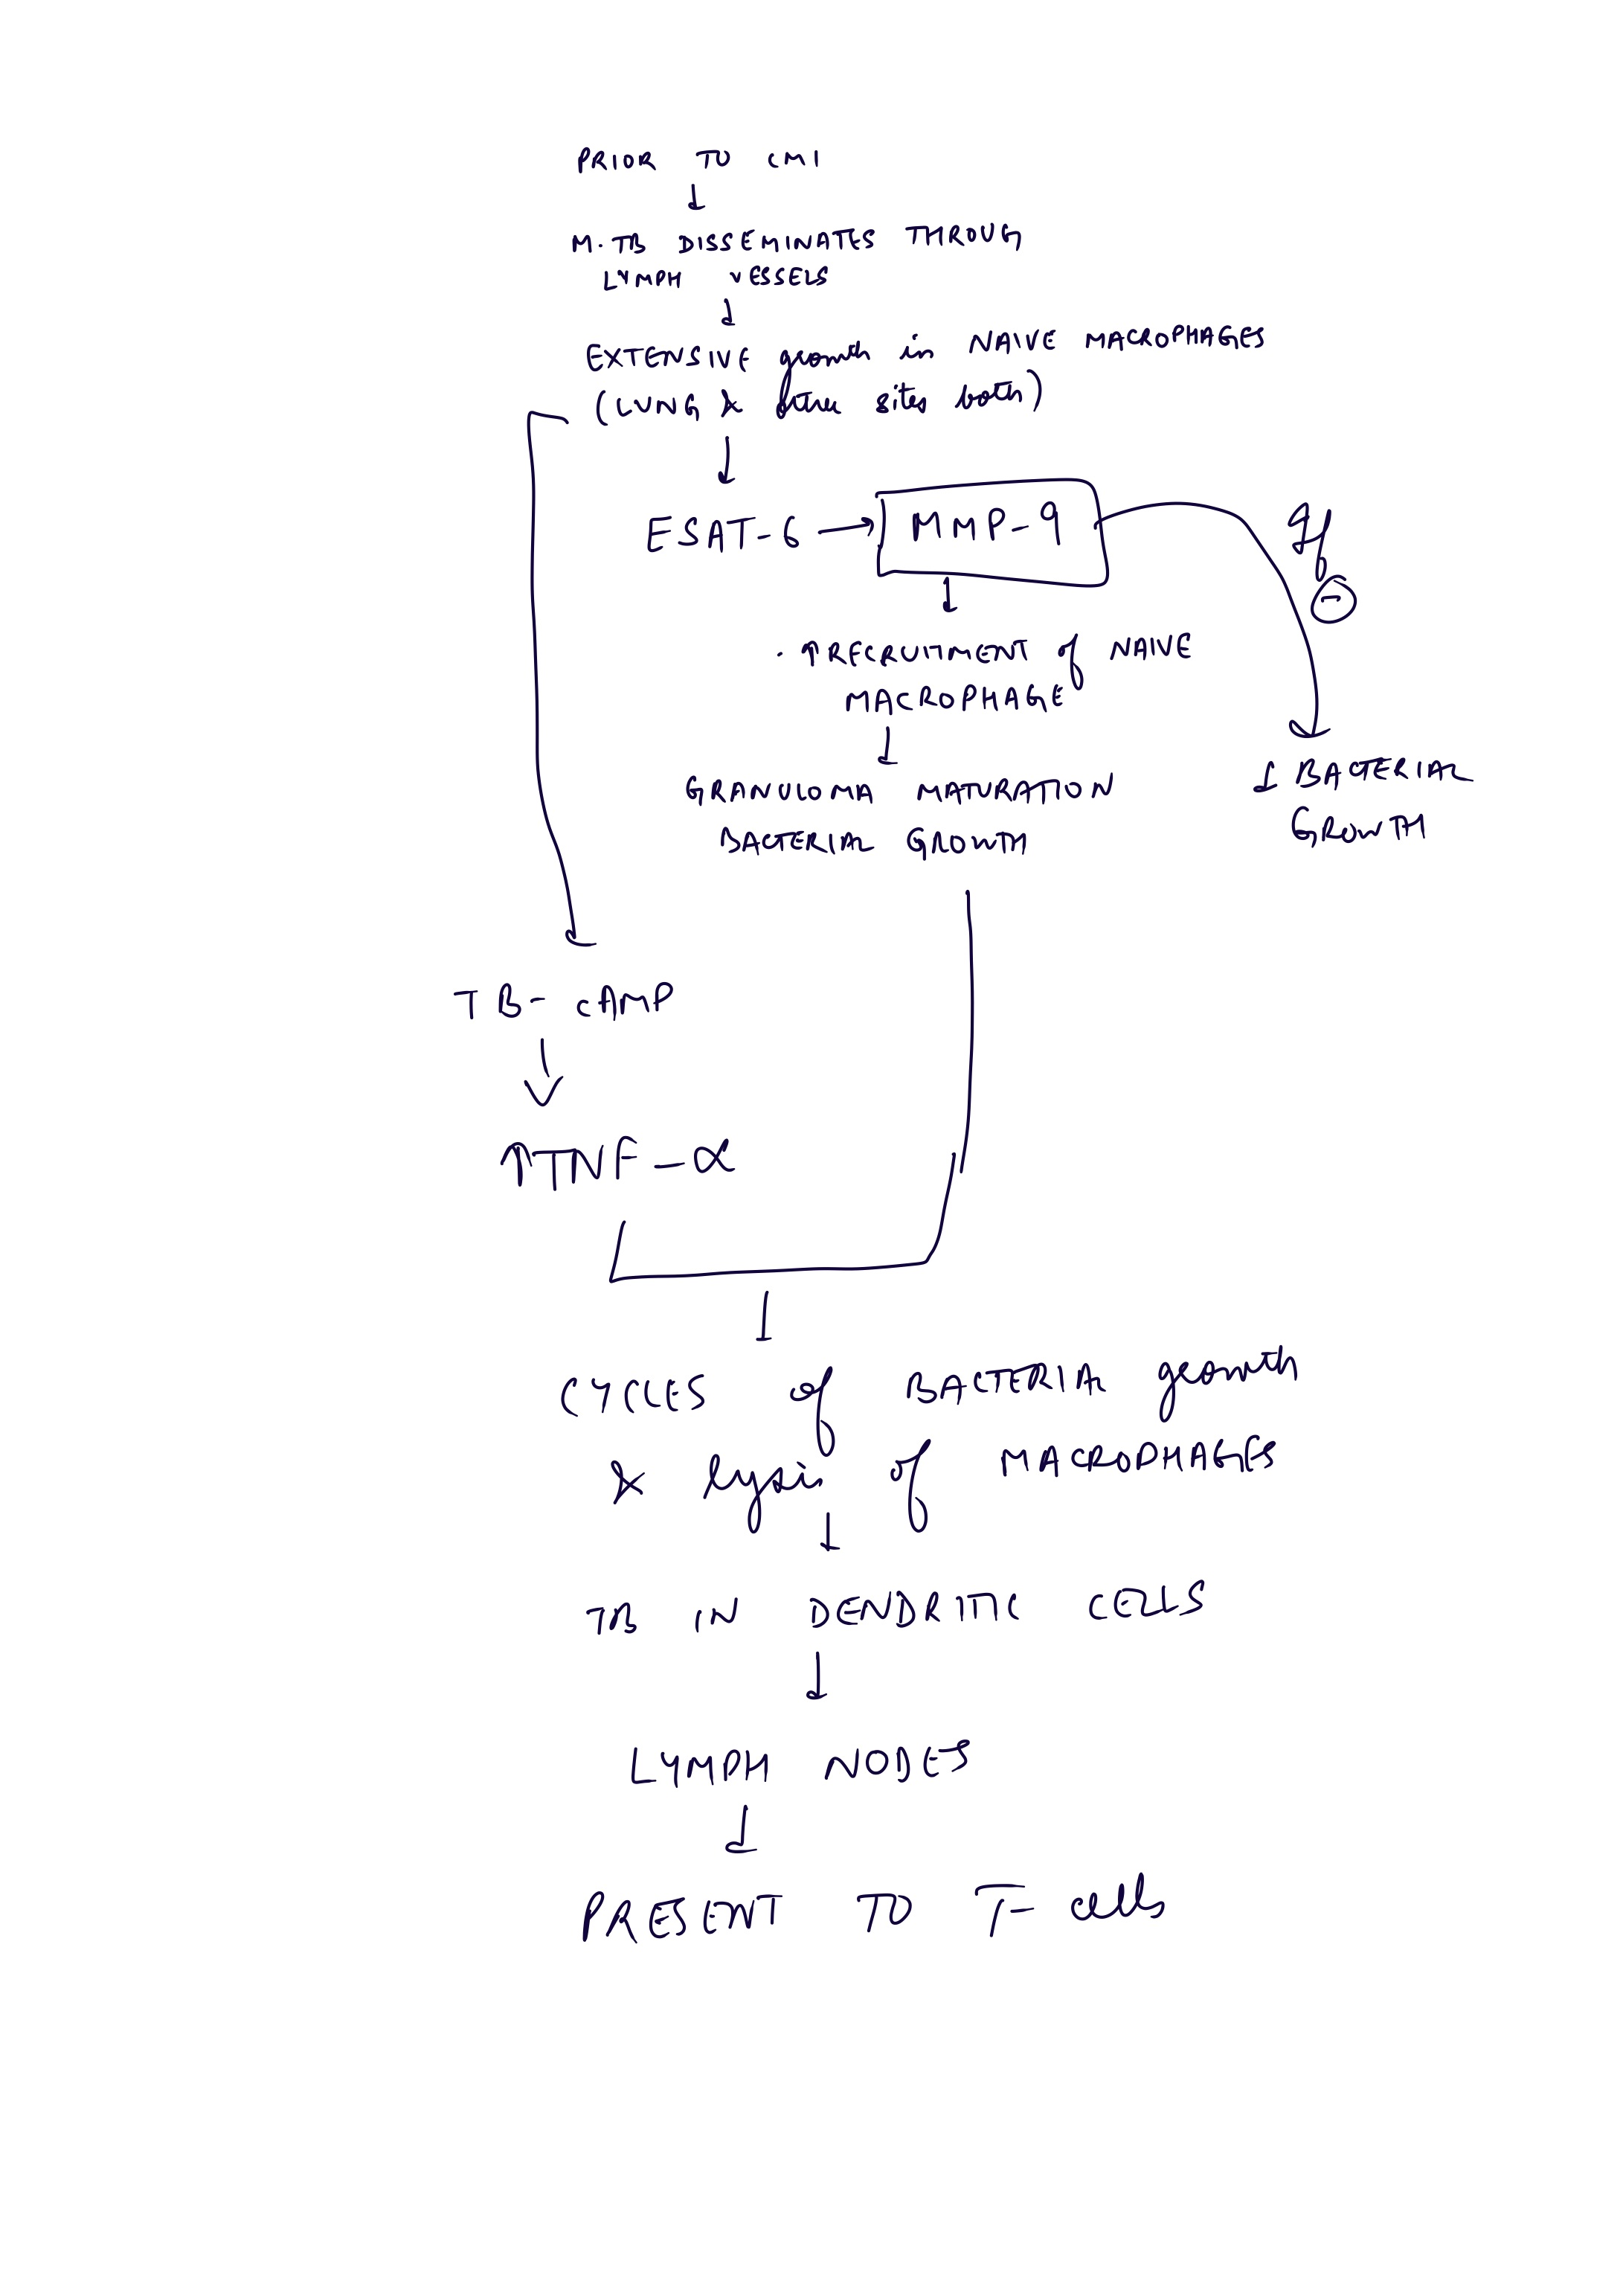 PRIOR TO CMI
↓
M. TB DISSEMINATES THROUG
LYMPH VESSELS
↓
EXTENSIVE growth in NAIVE MACROPHAGES
(LUNG & other sites both)
↓
ESAT-6 → MMP-9
If
⊖
↓
· ↑ RECRUITMENT of NAIVE
MACROPHAGE
↓
GRANULOMA MATURATION
BACTERIAL GROWTH
↓ BACTERIAL
GROWTH
TB- cAMP
↓
↑TNF-α
CYCLES of BACTERIA growth
& lysis of MACROPHAGES
↓
TB IN DENDRITIC CELLS
↓
LYMPH NODES
↓
PRESENT TO T- cells